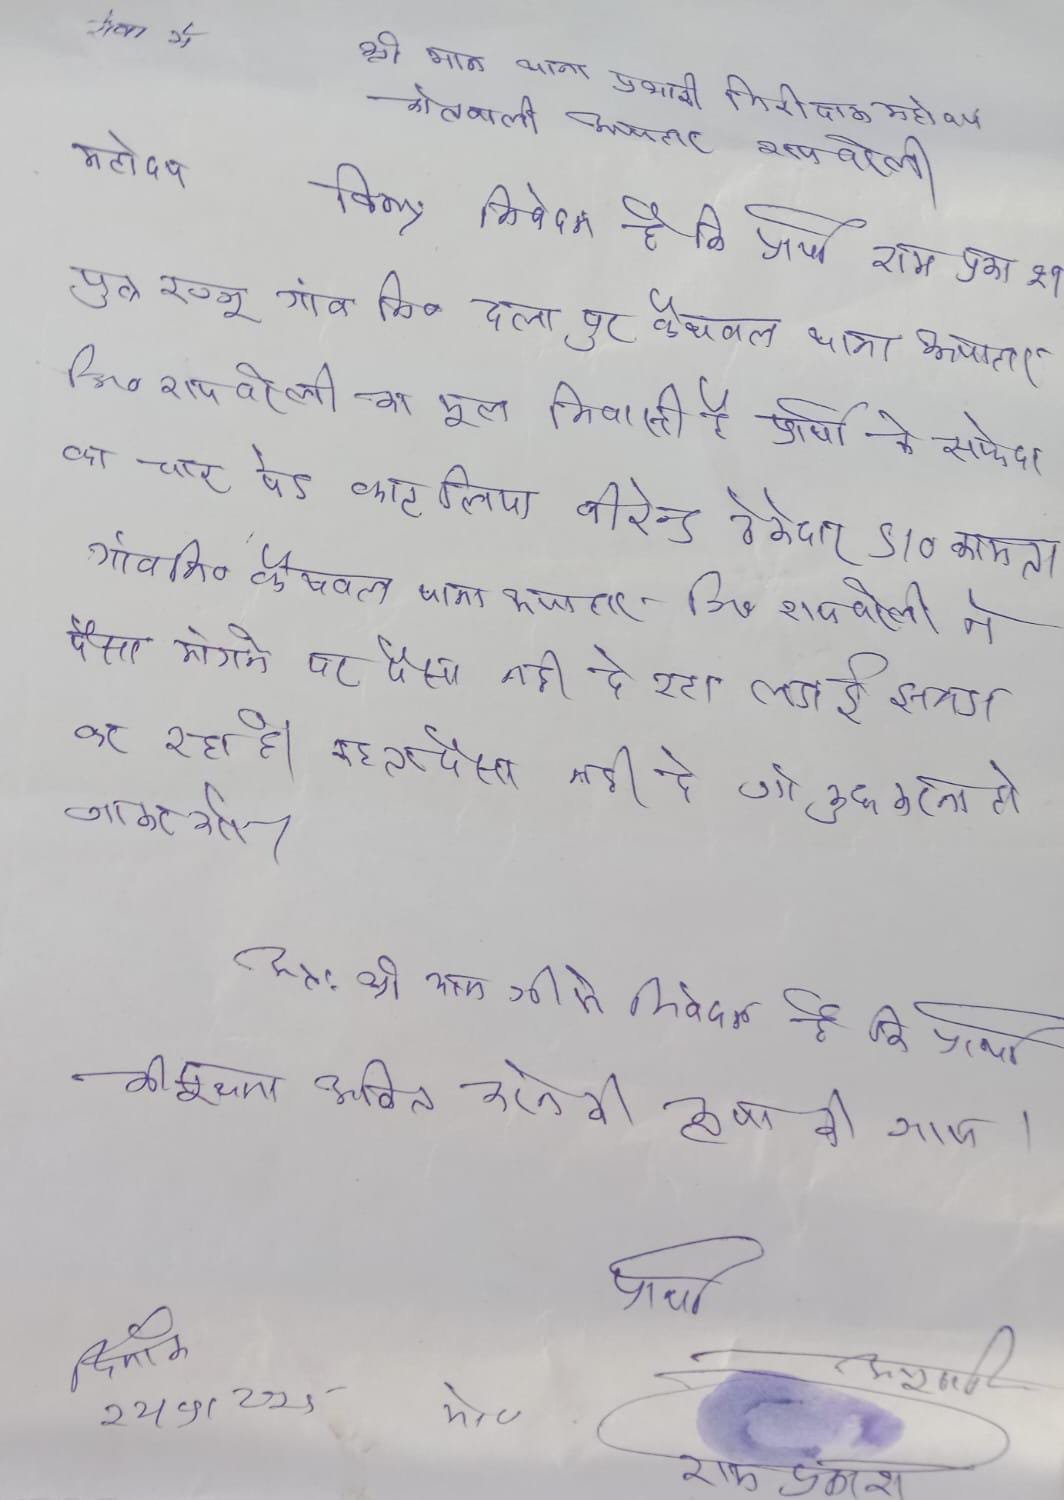 सेवा में
श्री मान थाना प्रभारी निरीक्षक महोदय
कोतवाली ऊंचाहार रायबरेली
महोदय
विनम्र निवेदन है कि प्रार्थी राम प्रकाश
पुत्र रज्जू गांव नि० दलापुर कैथवल थाना ऊंचाहार
जि० रायबरेली का मूल निवासी है प्रार्थी के सफेदा
का चार पेड काट लिया वीरेन्द्र ठेकेदार S/o कामता
गांव नि० कैथवल थाना ऊंचाहार जि० रायबरेली ने
पैसा मांगने पर पैसा नही दे रहा लडाई झगडा
कर रहा है। कहता पैसा नही दे जो कुछ करना हो
जाकर
अतः श्री मान जी से निवेदन है कि प्रार्थी
की सूचना अंकित करने की कृपा की जाय।
प्रार्थी
दिनांक
2025 मो०
राम प्रकाश